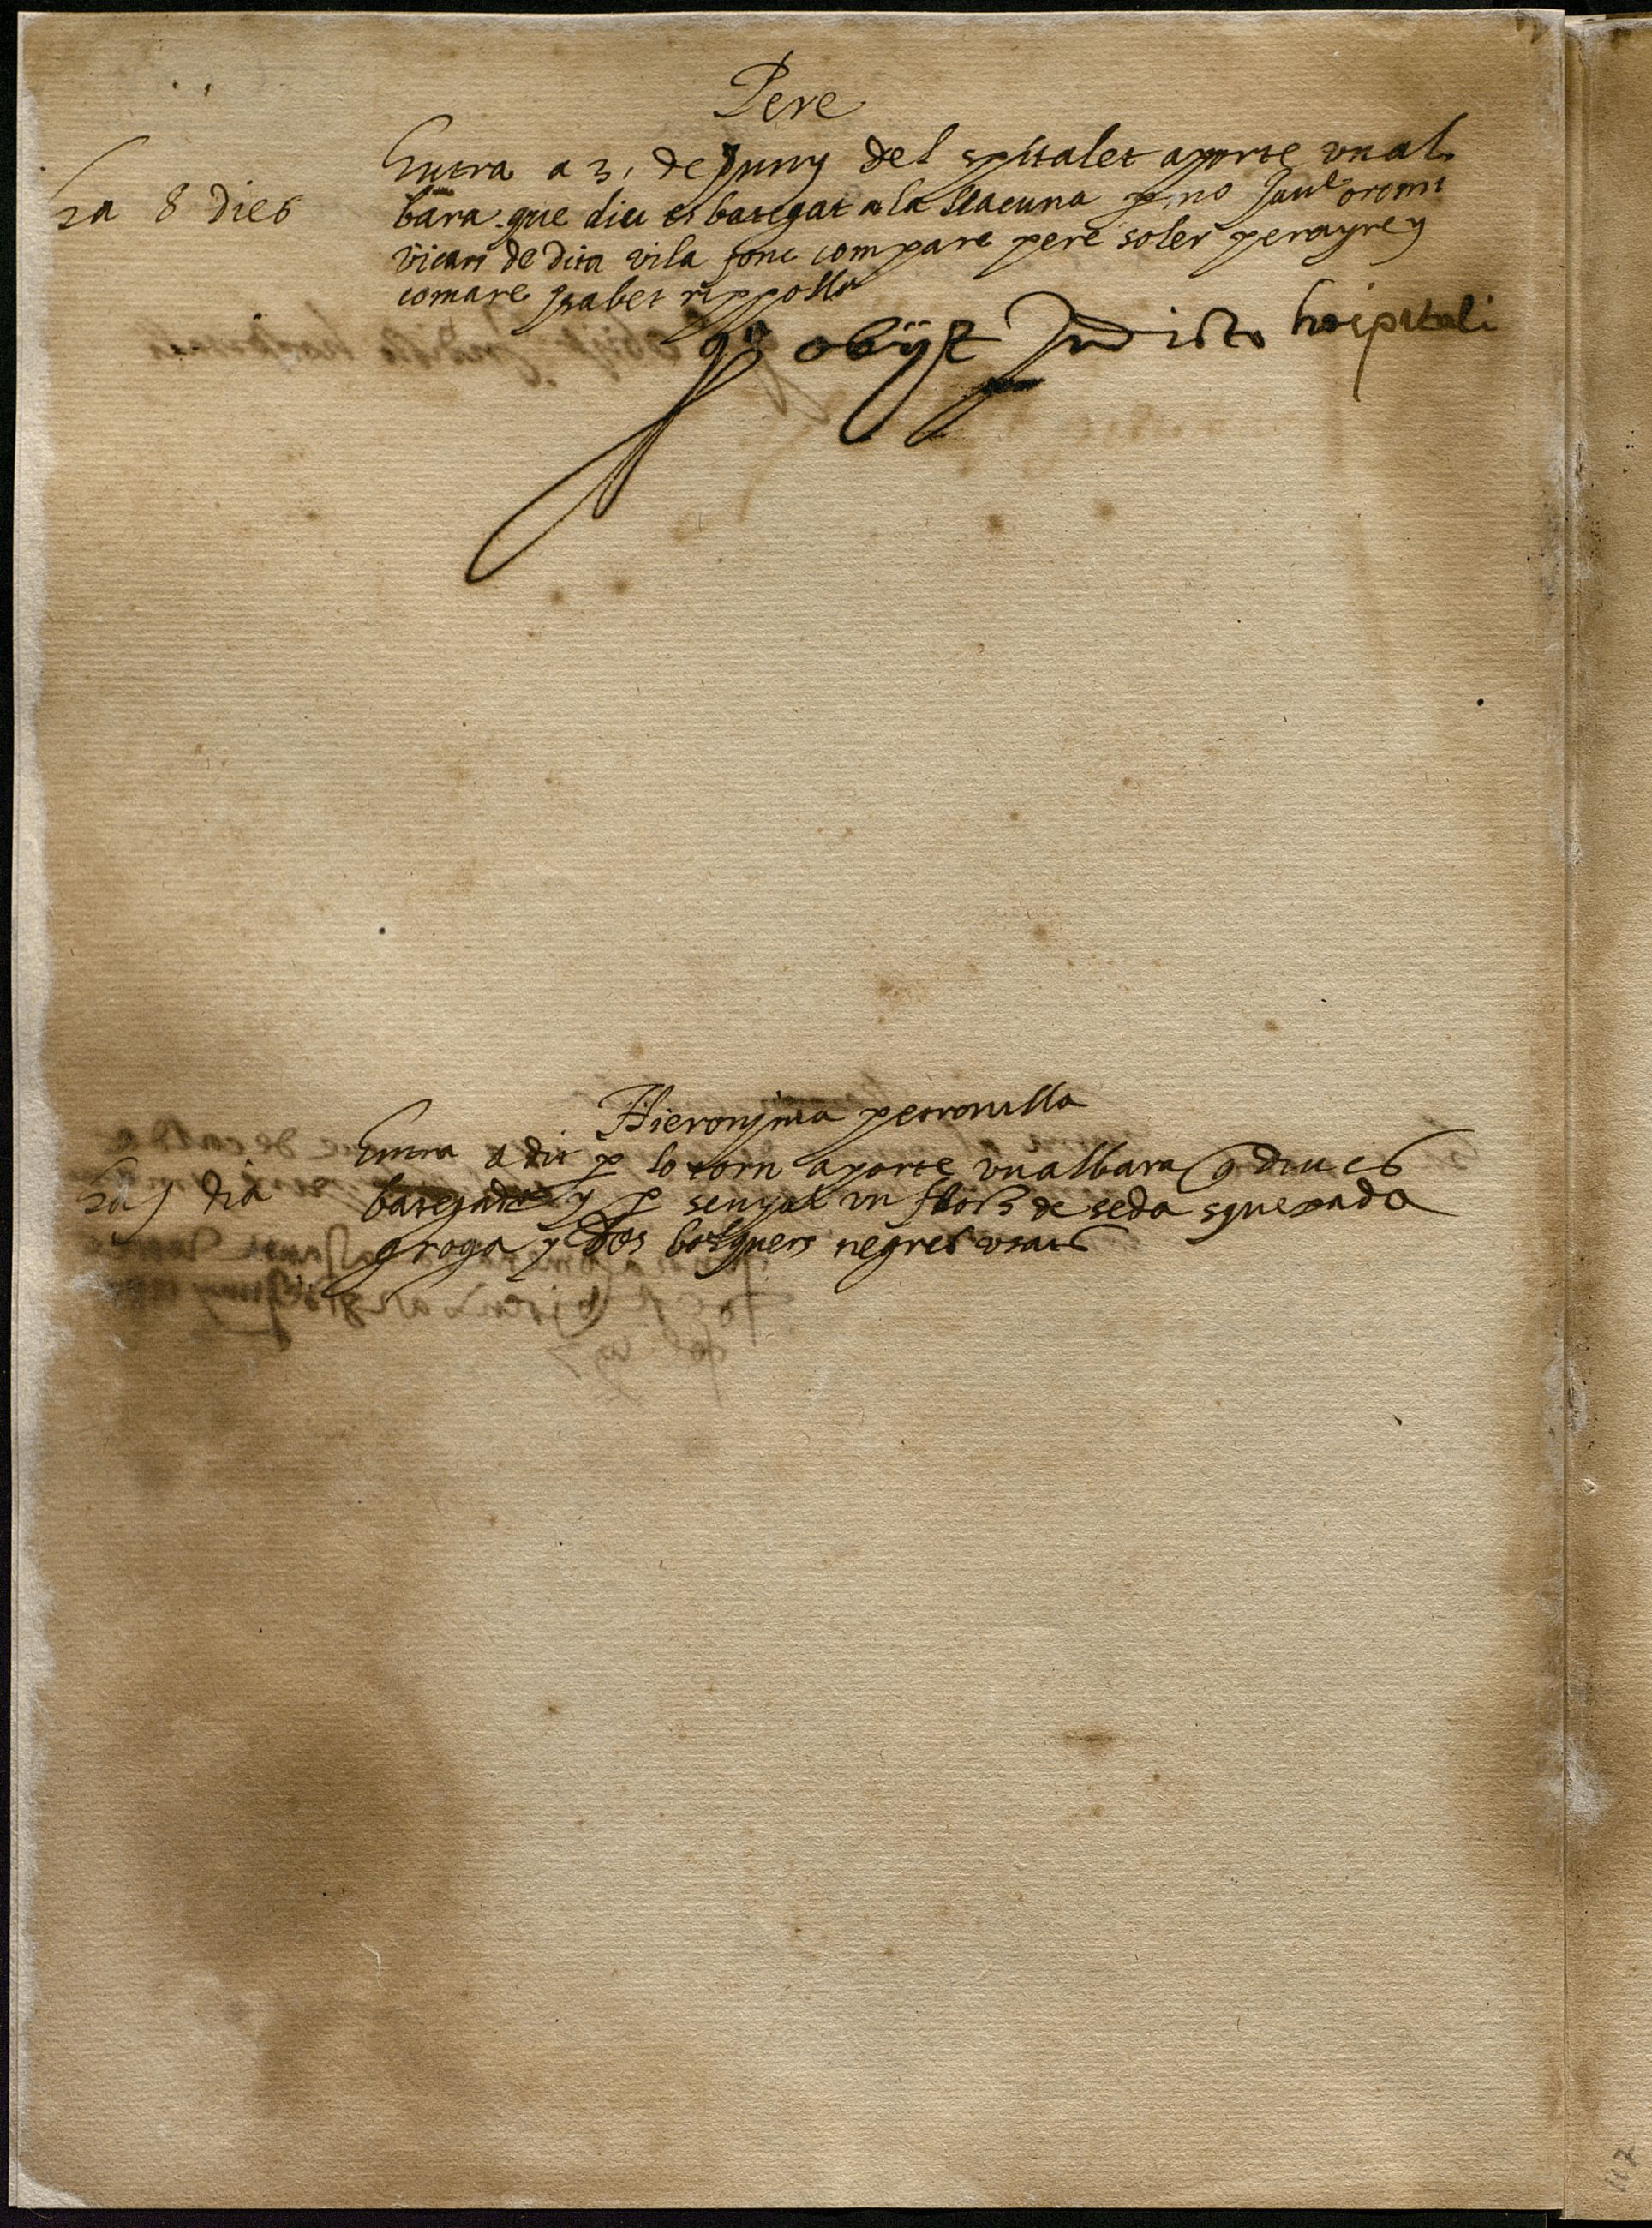 Pere
ha 8 dies
Entra a 3. de Juny del spitalet aporte un al
bara que diu es bategat a la llacuna p mo Jaul oromi
vicari de dita vila fonc compare pere soler perayre y
comare ysabet rippolla
obijt In dicto hospitali
Hieronyma petronilla
ha j dia
Entra a dit p lo torn aporte un albara q diu es
bategada y p senyal un de seda squexada
groga y dos negres usats